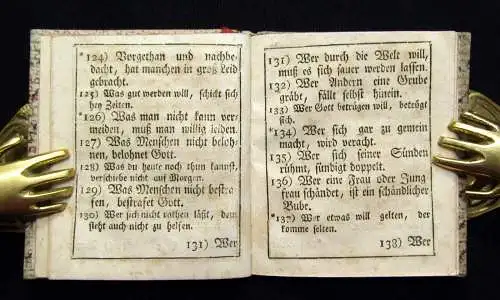 *124) Vorgethan und nachbe-
dacht, hat manchen in groß Leid
gebracht.
125) Was gut werden will, schickt sich
bey Zeiten.
*126) Was man nicht kann ver-
meiden, muß man willig leiden.
127) Was Menschen nicht beloh-
nen, belohnet Gott.
128) Was du heute noch thun kannst,
verschiebe nicht auf Morgen.
129) Was Menschen nicht bestra-
fen, bestrafet Gott.
130) Wer sich nicht rathen läßt, dem
steht auch nicht zu helfen.
131) Wer
131) Wer durch die Welt will,
muß es sich sauer werden lassen.
132) Wer Andern eine Grube
gräbt, fällt selbst hinein.
133) Wer Gott betrügen will, betrügt
sich.
*134) Wer sich gar zu gemein
macht, wird veracht.
135) Wer sich seiner Sünden
rühmt, sündigt doppelt.
136) Wer eine Frau oder Jung
frau schändet, ist ein schändlicher
Bube.
*137) Wer etwas will gelten, der
komme selten.
138) Wer